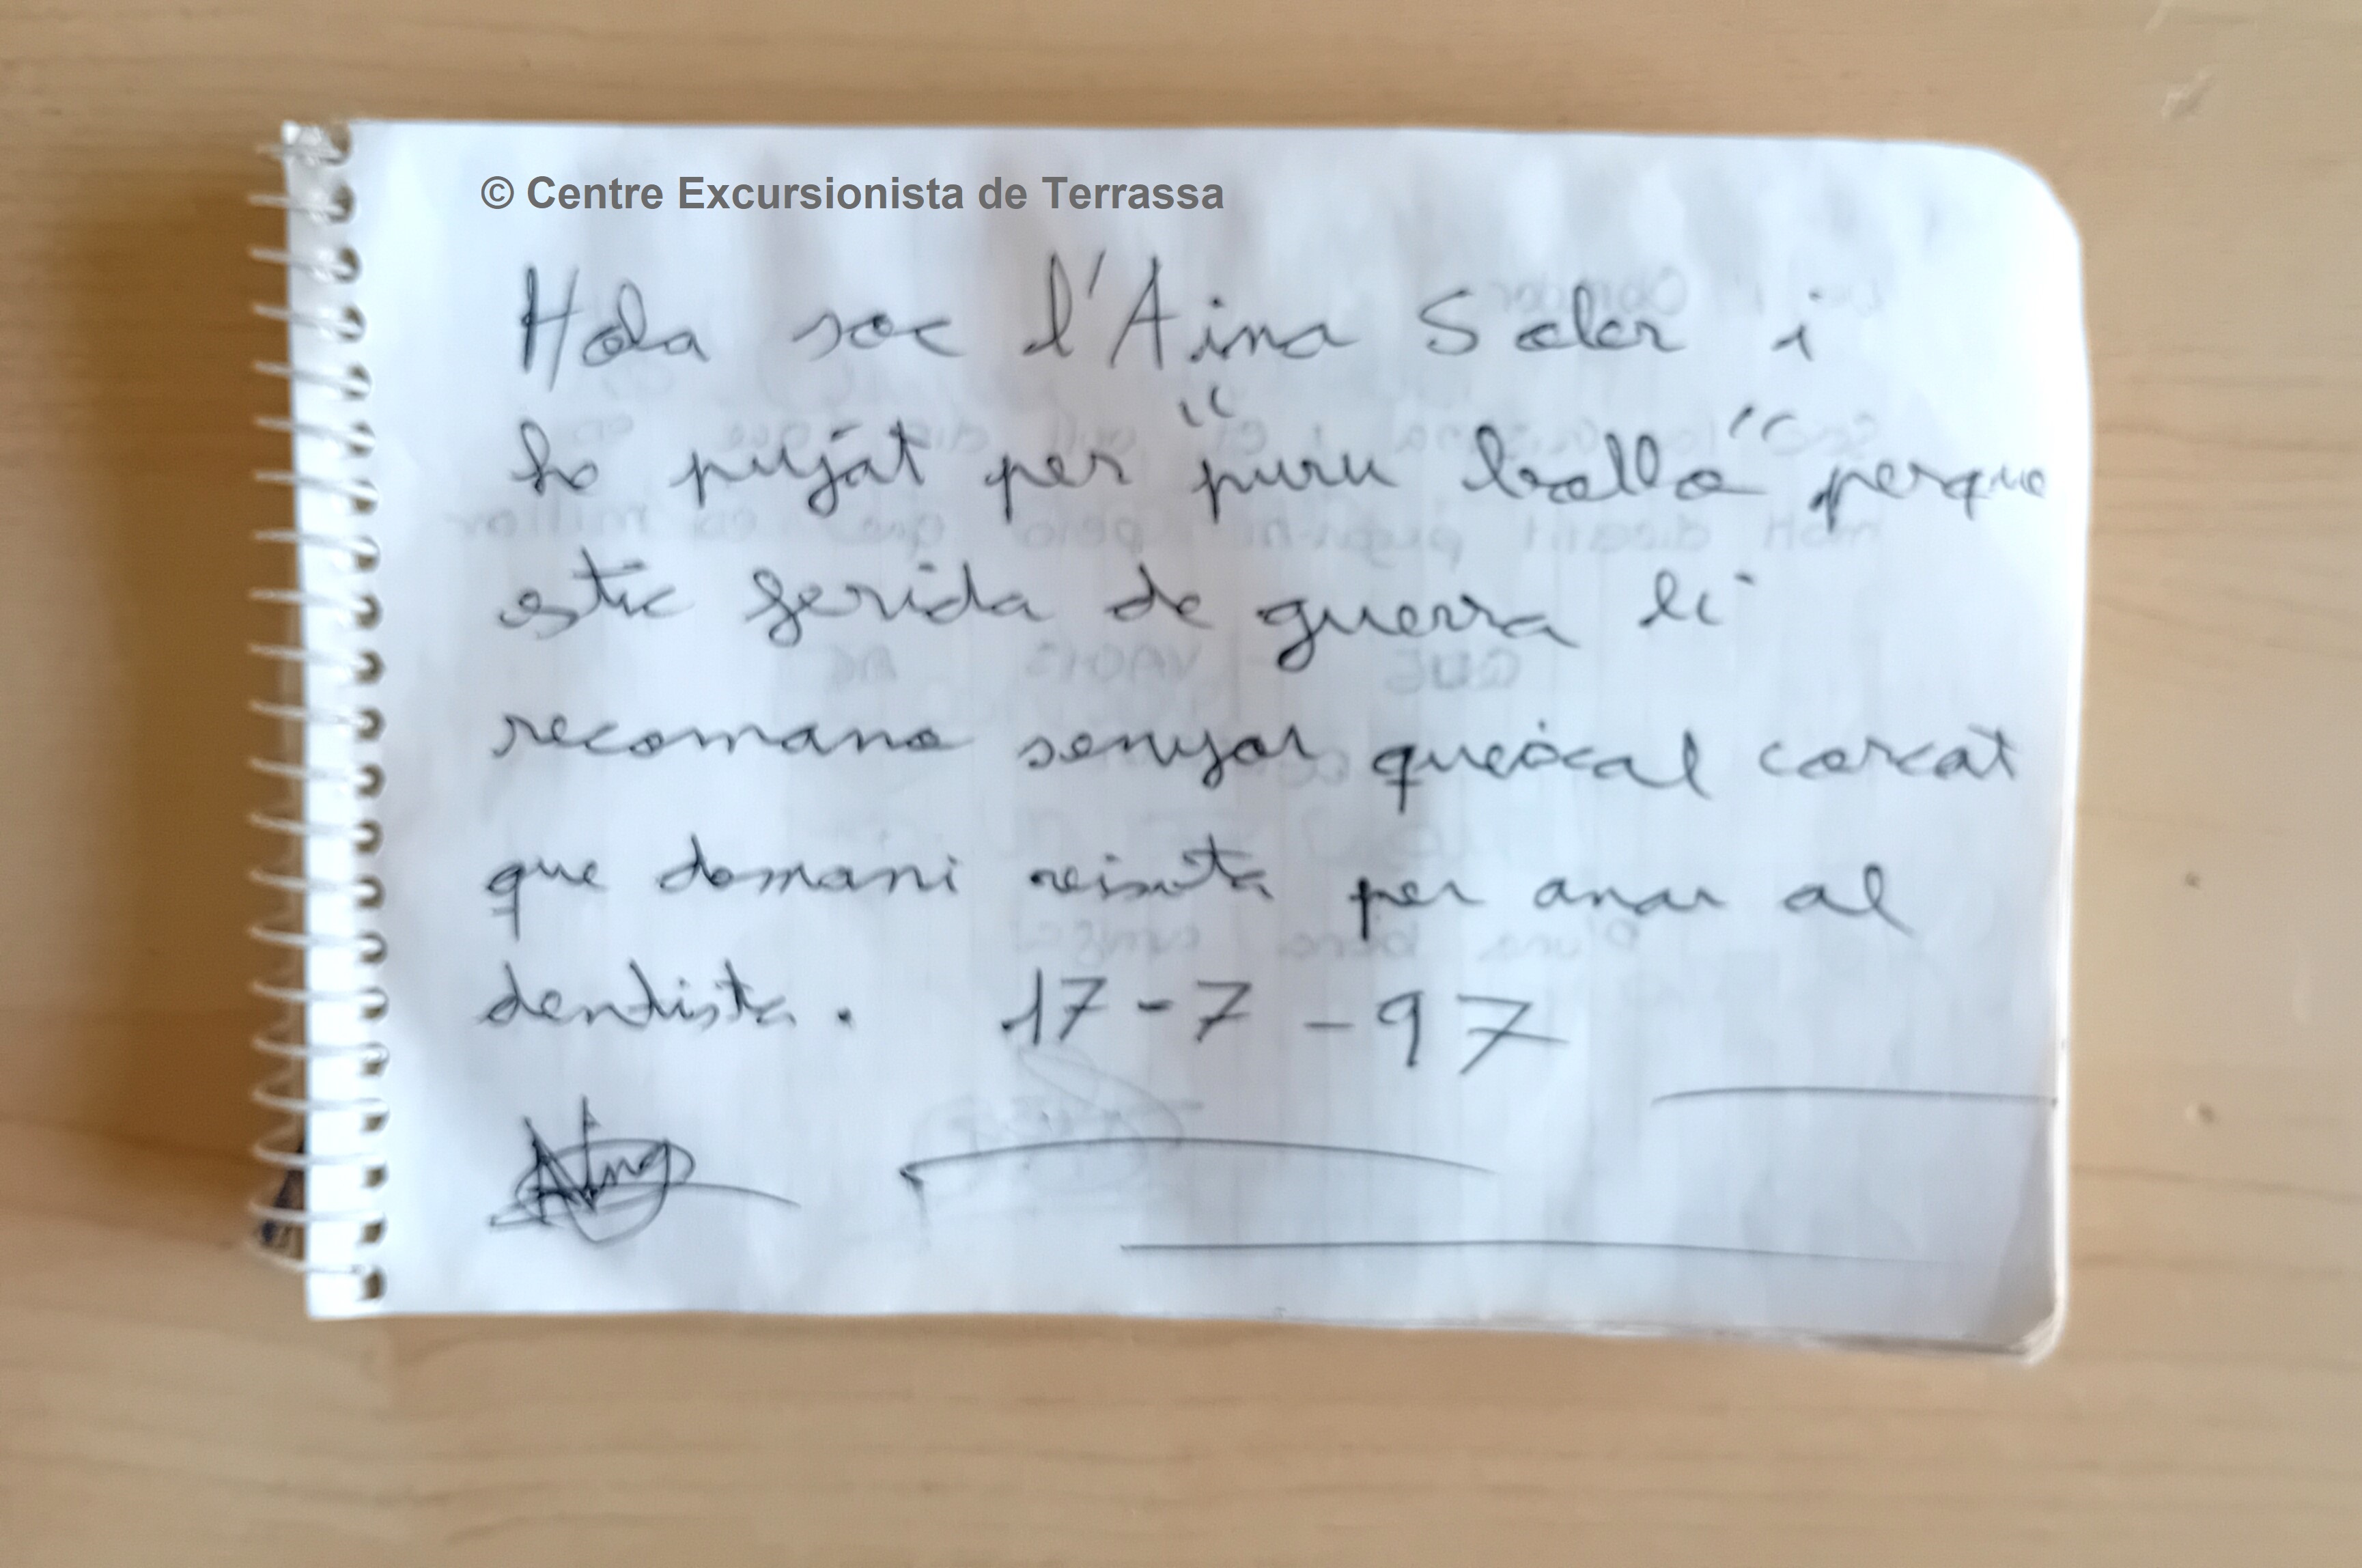 © Centre Excursionista de Terrassa
Hola soc l'Aina Soler i
ho pujat per "puru balló" perque
estic ferida de guerra li
recomano senyor queixal corcat
que domani visita per anar al
dentista. 17-7-97
Aina